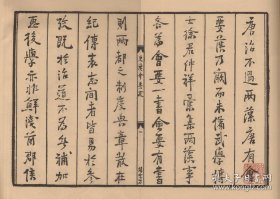 唐治不過兩漢唐有會
要漢乃闕而未備武學博
士徐君仲祥采集兩漢事
各為會要一書會要有書
則兩都之制度典章散在
紀傳表志間者皆易於參
攷既於治道不為無補加
惠後學亦非鮮淺前郡侯